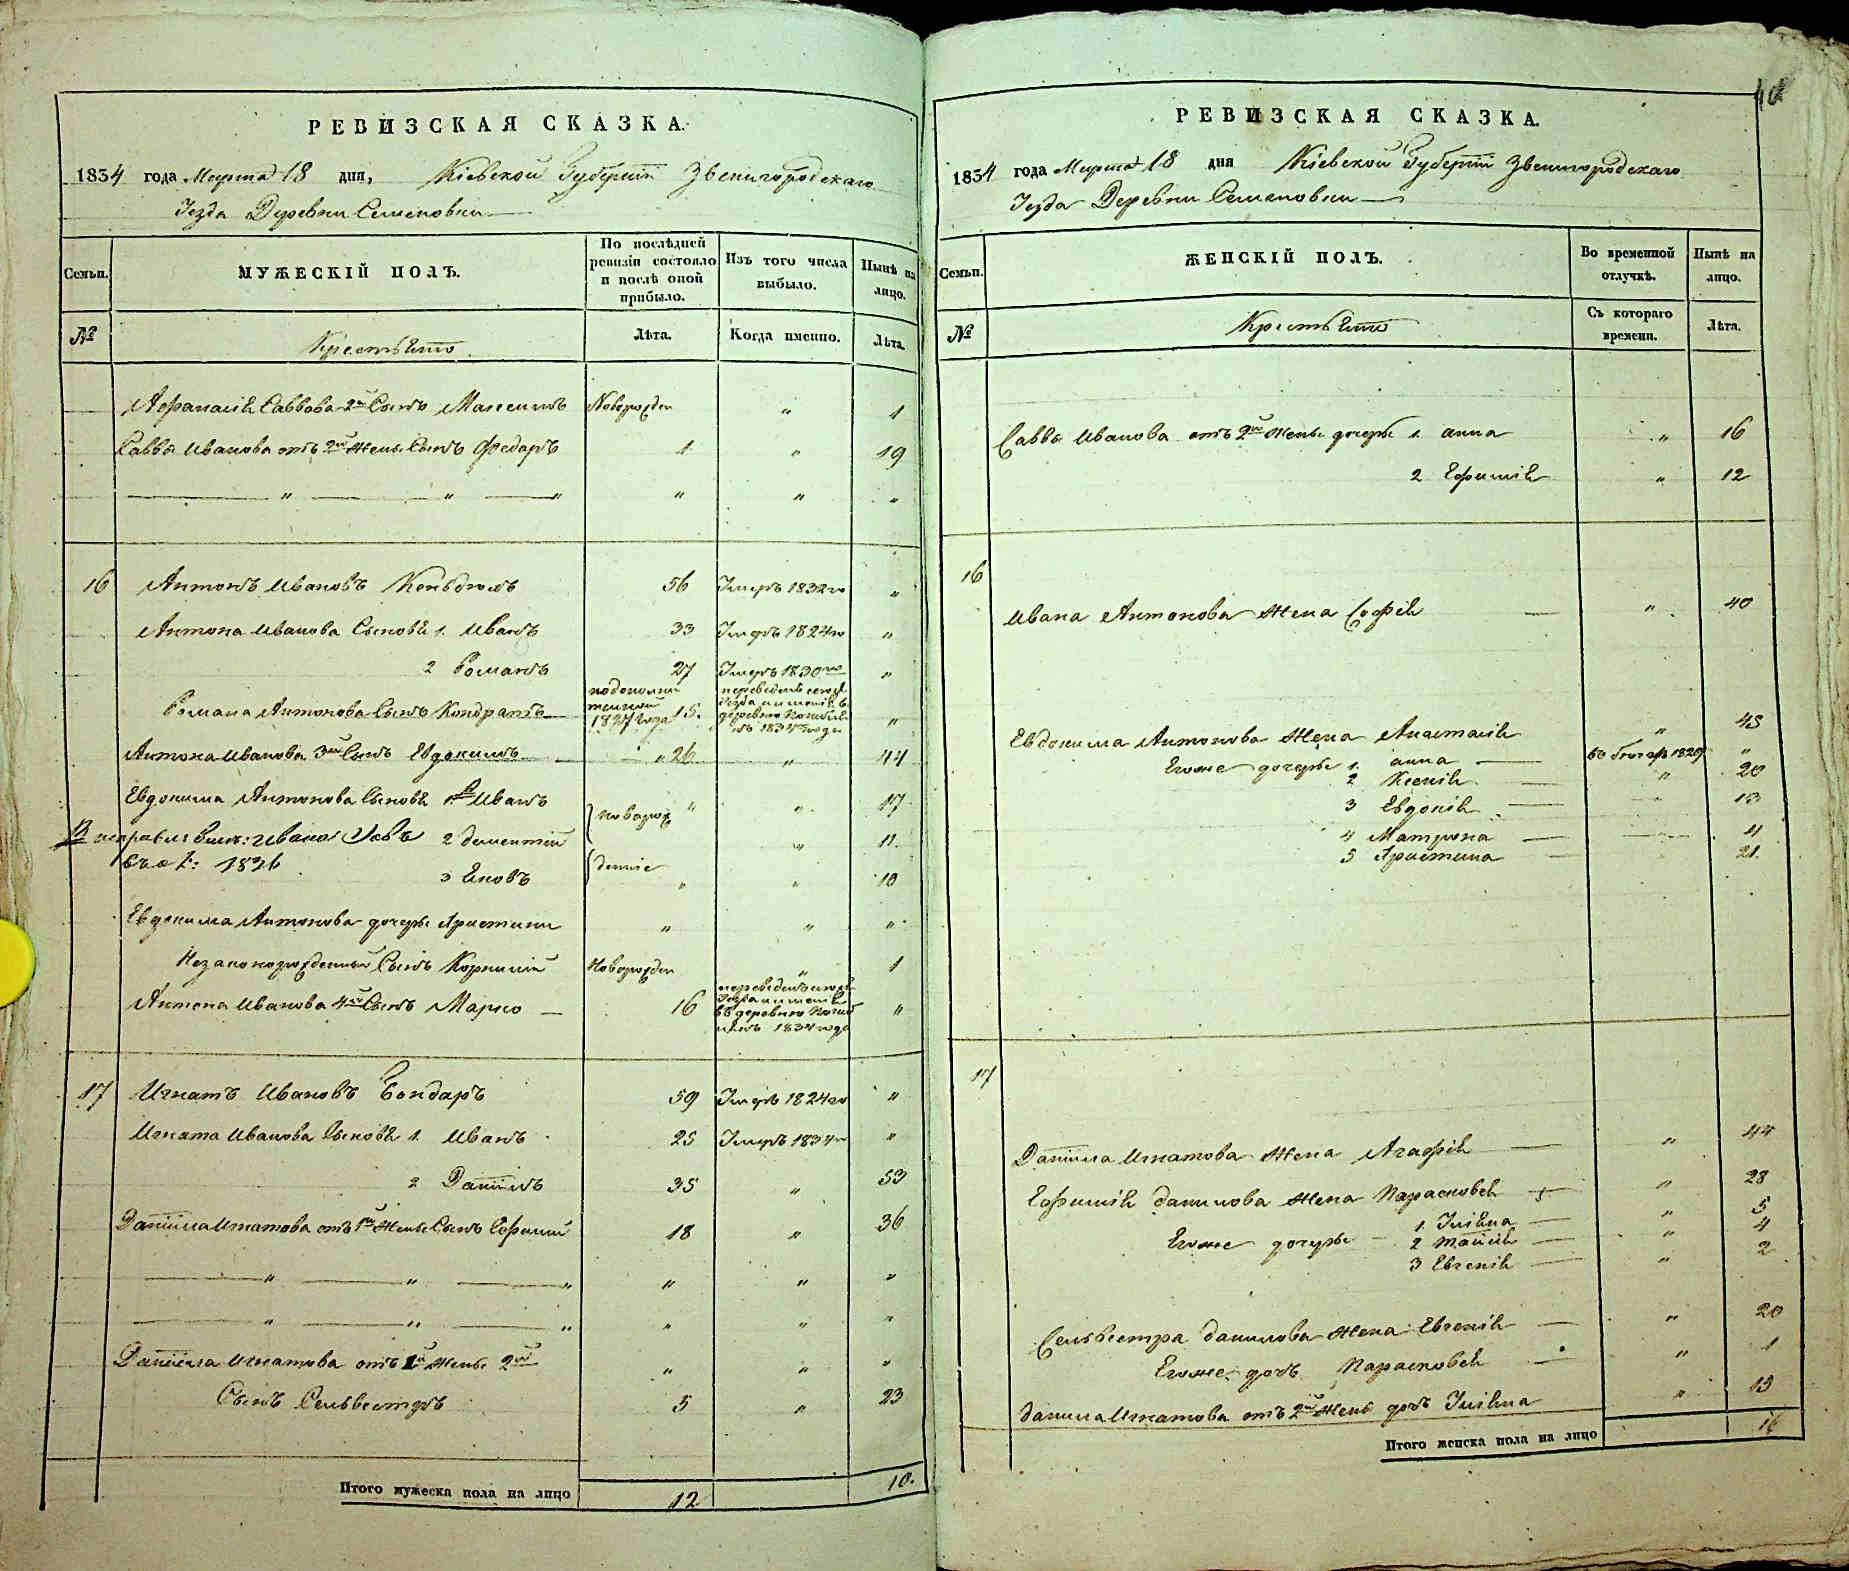 РЕВИЗСКАЯ СКАЗКА.
1834 года Марта 18 дня, Кіевской Губерніи Звенигородскаго
Уезда Деревни Семеновки
Семьи. МУЖЕСКІЙ ПОЛЪ. По послѣдней ревизіи состояло и послѣ оной прибыло. Изъ того числа выбыло. Нынѣ на лицо.
№ Крестьяно Лѣта. Когда именно. Лѣта.
Афанасія Саввова 2й Сынъ Максимъ Новорожден " 1
Саввы Иванова отъ 2й жены Сынъ Федоръ 1 " 19
" " " " " "
16 Антонъ Ивановъ 56 Умеръ 1832го "
Антона Иванова Сыновя 1. Иванъ 33 Умеръ 1824го "
2 Романъ 27 Умеръ 1830го "
Романа Антонова Сынъ Кондратъ 1827 года 15. переведенъ
деревню
1834 года "
Антона Иванова 3й Сынъ Евдокимъ " 26 " 44
Евдокима Антонова Сыновя 1й Иванъ новорож " " 17
2 Дементій " 11.
1826
3 Яковъ денніе " " 10
Евдокима Антонова дочеры Христины " " "
Незаконорожденный Сынъ Корнилій Новорожден " 1
Антона Иванова 4й Сынъ Марко 16 переведенъ
въ деревню
1834 года "
17 Игнатъ Ивановъ Бондаръ 59 Умеръ 1824го "
Игната Иванова Сыновя 1. Иванъ 25 Умеръ 1834го "
2 Даніилъ 35 " 53
Даніила Игнатова отъ 1й жены Сынъ Ефимій 18 " 36
" " " " " "
" " " " " "
Даніила Игнатова отъ 1й жены 2й " " "
Сынъ Сельвестръ 5 " 23
Итого мужеска пола на лицо 12 10.
РЕВИЗСКАЯ СКАЗКА.
1834 года Марта 18 дня Кіевской Губерніи Звенигородскаго
Уезда Деревни Семеновки
Семьи. ЖЕНСКІЙ ПОЛЪ. Во временной отлучкѣ. Нынѣ на лицо.
№ Крестьяно Съ котораго времени. Лѣта.
Саввы Иванова отъ 2й жены дочеры 1. анна " 16
2 Ефимія " 12
16
Ивана Антонова жена Софія " 40
Евдокима Антонова жена Анастасія " 45
Егоже дочеры 1. анна 1829 "
2 Ксенія " 20
3 Евдокія 13
4 Матрона 11
5 Христина 21.
17
Даніила Игнатова жена Агафія " 44
Ефимія данилова жена Парасковея " 28
Егоже дочеры 1. Уліяна " 5
2 Таисія " 4
3 Евгенія " 2
Сельвестра данилова жена Евгенія " 20
Егоже дочъ Парасковея " 1
данила Игнатова отъ 2й жены дочъ Уліяна " 13
Итого женска пола на лицо 16